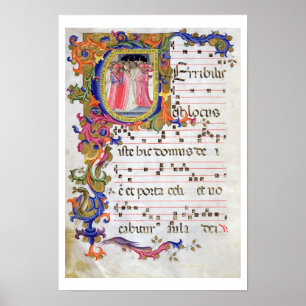 TErribilis
locus
iste hic domus de i
ē et porta celi et uo
cabitur aula dei